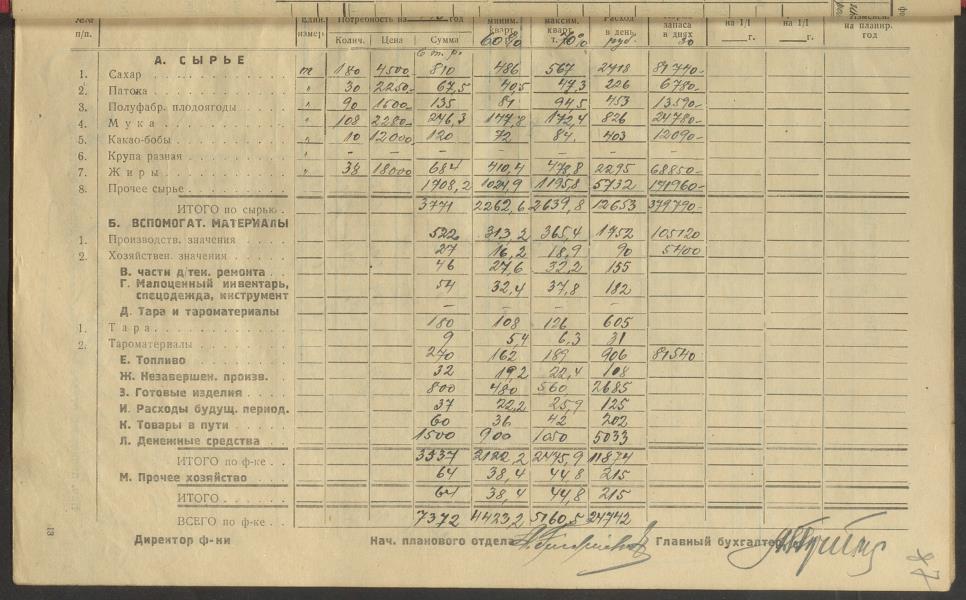 №№ Един. Потребность на год миним. максим. Расход запаса на 1/I на 1/I Изменен.
п/п. измер. Колич. Цена Сумма кварт. 60% кварт. 70% в день руб. в днях 30 г. г. на планир. год
в т. р.
А. СЫРЬЕ
1. Сахар т 180 4500 810 486 567 2718 81740-
2. Патока " 30 2250- 67,5 40,5 47,3 226 6780-
3. Полуфабр. плодоягоды " 90 1500- 135 81 94,5 453 13590-
4. Мука " 108 2280- 246,3 147,8 172,4 826 24780-
5. Какао-бобы " 10 12000 120 72 84, 403 12090-
6. Крупа разная " – – – – –
7. Жиры " 38 18000 684 410,4 478,8 2295 68850-
8. Прочее сырье 1708,2 1024,9 1195,8 5732 171960-
ИТОГО по сырью 3771 2262,6 2639,8 12653 379790-
Б. ВСПОМОГАТ. МАТЕРИАЛЫ
1. Производств. значения 522 313,2 365,4 1752 105120
2. Хозяйствен. значения 27 16,2 18,9 90 5400
В. части д/тек. ремонта 46 27,6 32,2 155
Г. Малоценный инвентарь,
спецодежда, инструмент 54 32,4 37,8 182
Д. Тара и тароматериалы – – – –
1. Тара 180 108 126 605
2. Тароматериалы 9 5,4 6,3 31
Е. Топливо 270 162 189 906 81540
Ж. Незавершен. произв. 32 19,2 22,4 108
З. Готовые изделия 800 480 560 2685
И. Расходы будущ. период. 37 22,2 25,9 125
К. Товары в пути 60 36 42 202
Л. Денежные средства 1500 900 1050 5033
ИТОГО по ф-ке 3537 2122,2 2475,9 11874
М. Прочее хозяйство 64 38,4 44,8 215
ИТОГО 64 38,4 44,8 215
ВСЕГО по ф-ке 7372 4423,2 5160,5 24742
Директор ф-ки Нач. планового отдела Главный бухгалтер
13